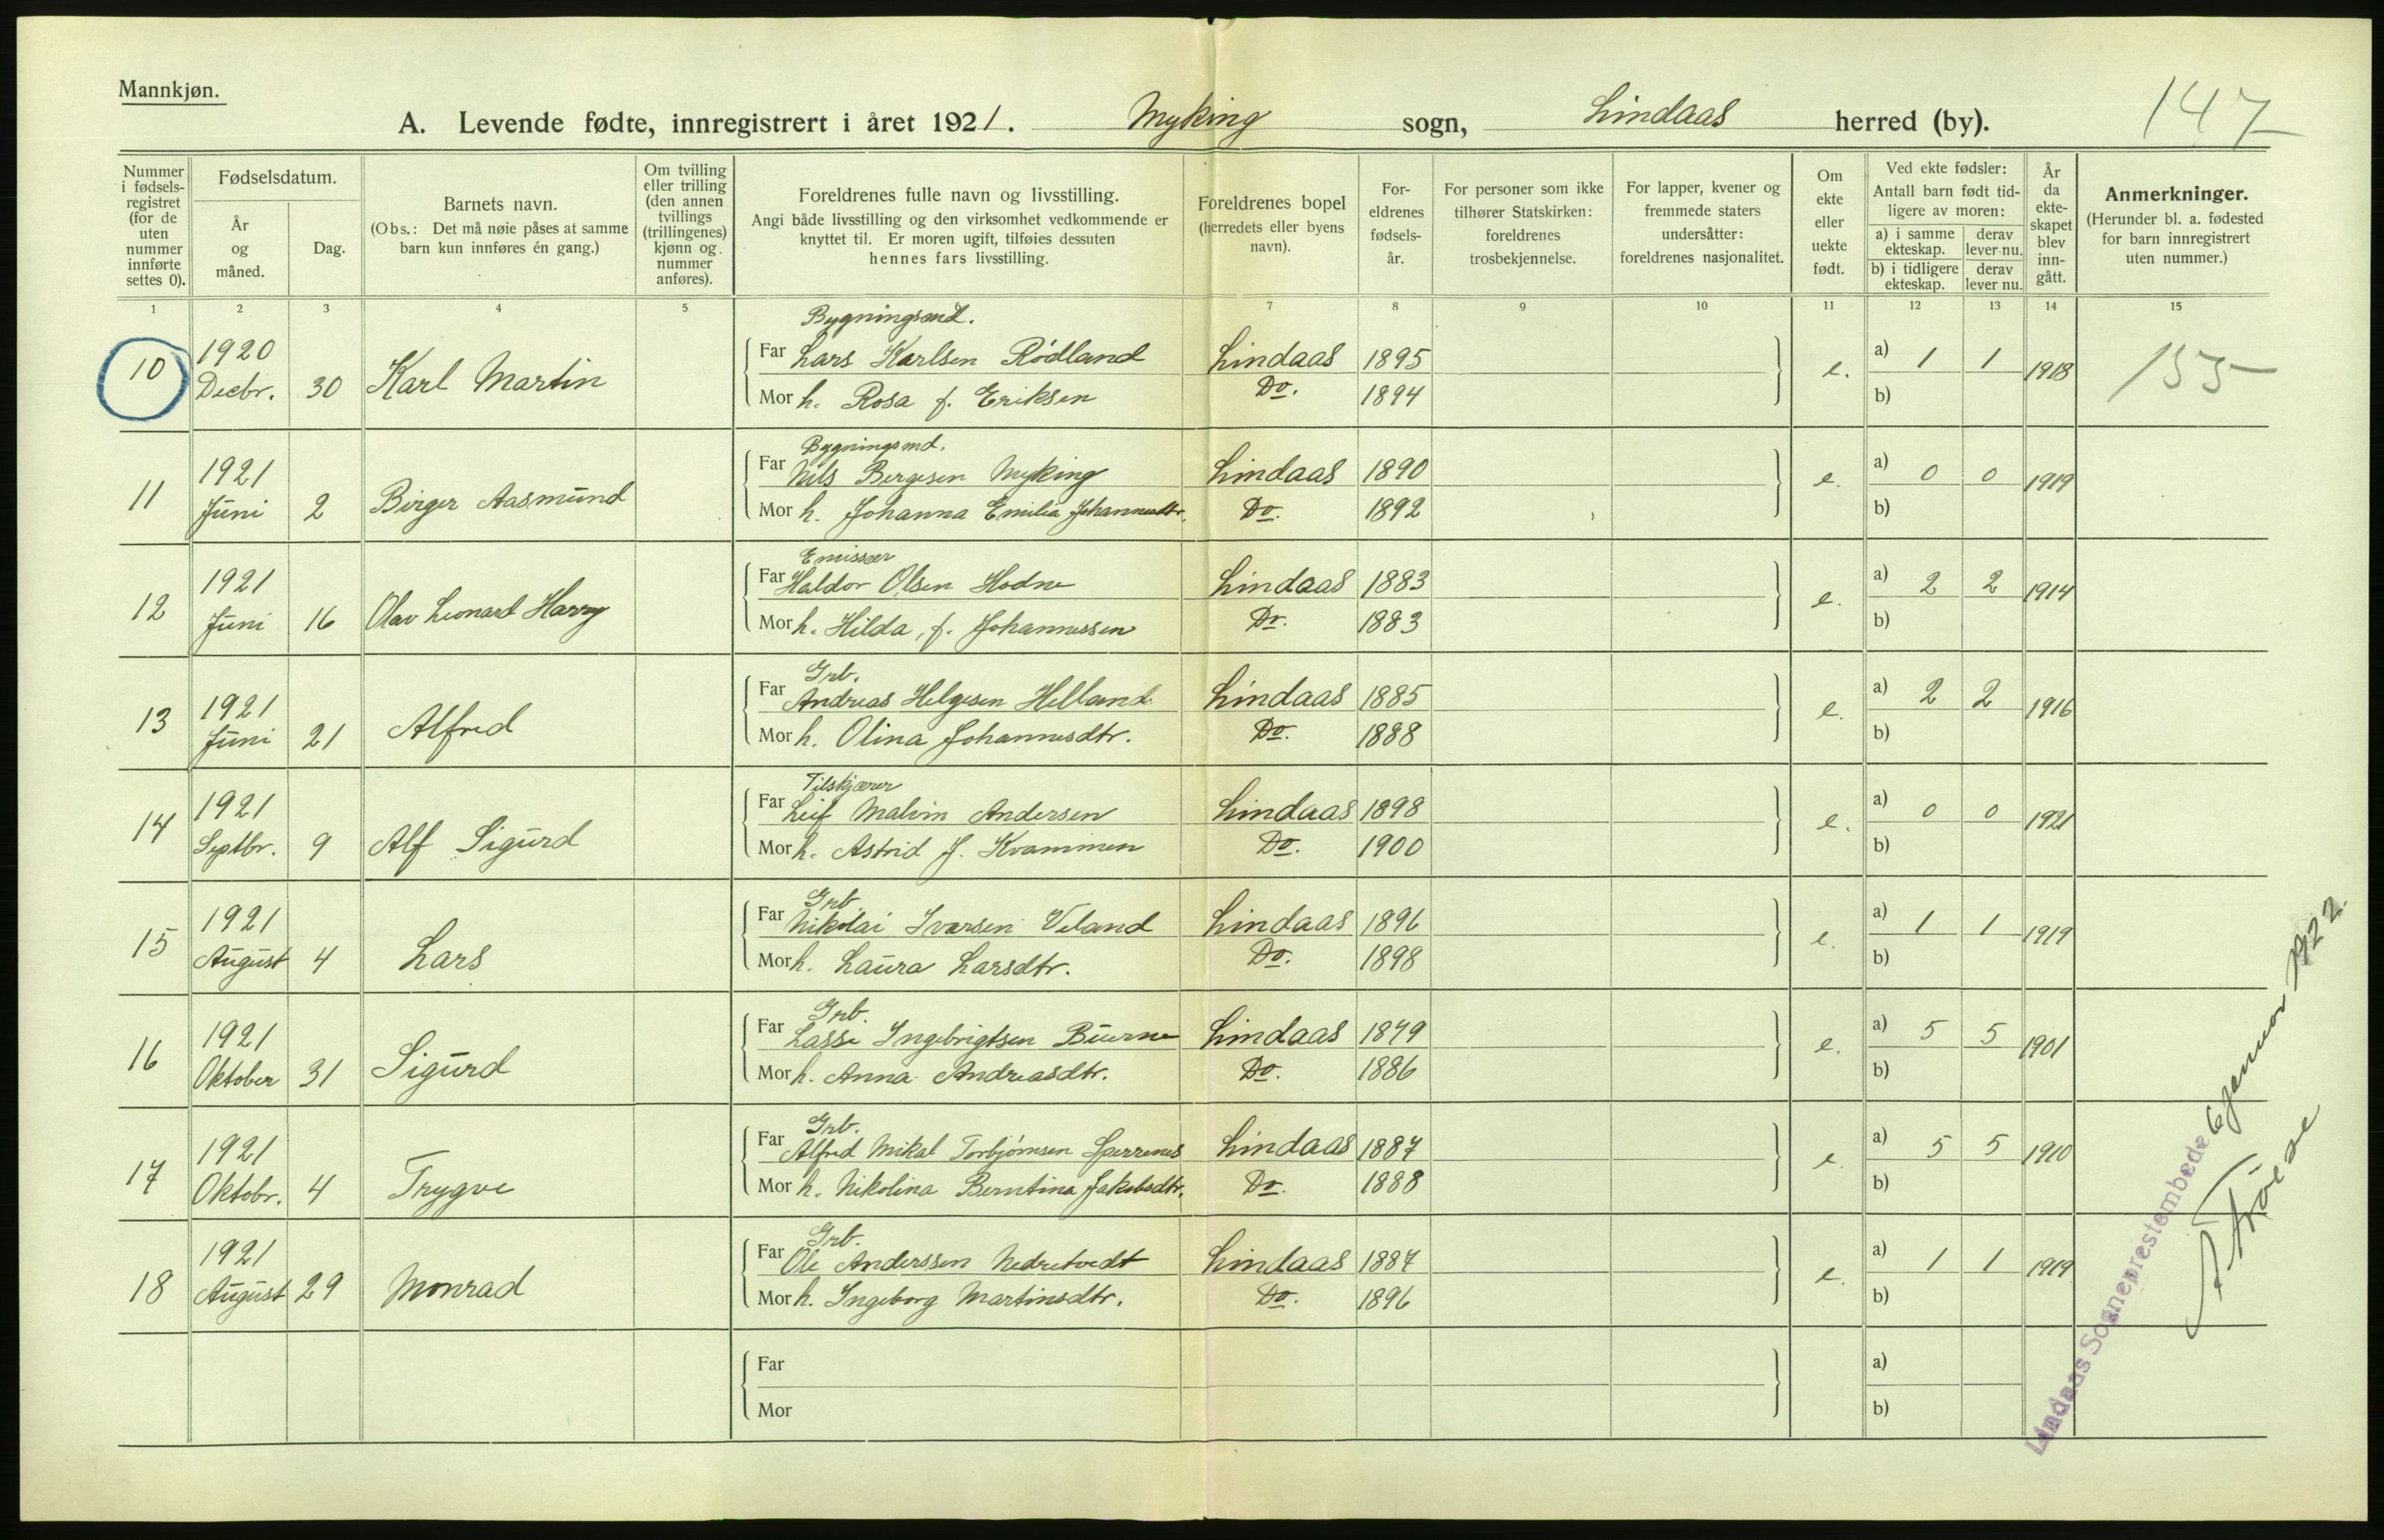 Mannkjøn.
A. Levende fødte, innregistrert i året 1921. Myking sogn, Lindaas herred (by). 147
Nummer i fødsels-registret (for de uten nummer innførte settes 0).
Fødselsdatum.
År og måned.
Dag.
Barnets navn.
(Obs.: Det må nøie påses at samme barn kun innføres én gang.)
Om tvilling eller trilling (den annen tvillings (trillingenes) kjønn og nummer anføres).
Foreldrenes fulle navn og livsstilling.
Angi både livsstilling og den virksomhet vedkommende er knyttet til. Er moren ugift, tilføies dessuten hennes fars livsstilling.
Foreldrenes bopel (herredets eller byens navn).
For-eldrenes fødsels-år.
For personer som ikke tilhører Statskirken: foreldrenes trosbekjennelse.
For lapper, kvener og fremmede staters undersåtter: foreldrenes nasjonalitet.
Om ekte eller uekte født.
Ved ekte fødsler: Antall barn født tid-ligere av moren:
a) i samme ekteskap.
derav lever nu.
b) i tidligere ekteskap.
derav lever nu.
År da ekte-skapet blev inn-gått.
Anmerkninger.
(Herunder bl. a. fødested for barn innregistrert uten nummer.)
1 2 3 4 5 7 8 9 10 11 12 13 14 15
Bygningsmd.
10 1920 Decbr. 30 Karl Martin Far Lars Karlsen Rødland Lindaas 1895 e. a) 1 1 1918 155
Mor h. Rosa f. Eriksen Do. 1894 b)
Bygningsmd.
11 1921 Juni 2 Birger Aasmund Far Nils Bergesen Myking Lindaas 1890 e. a) 0 0 1919
Mor h. Johanna Emilia Johannesdtr. Do. 1892 b)
Emissær
12 1921 Juni 16 Olav Leonard Harry Far Haldor Olsen Hodne Lindaas 1883 e. a) 2 2 1914
Mor h. Hilda, f. Johannessen Do. 1883 b)
Grb.
13 1921 Juni 21 Alfred Far Andreas Helgesen Helland Lindaas 1885 e. a) 2 2 1916
Mor h. Olina Johannesdtr. Do. 1888 b)
Tilskjærer
14 1921 Septbr. 9 Alf Sigurd Far Leif Malvin Andersen Lindaas 1898 e. a) 0 0 1921
Mor h. Astrid f. Kvammen Do. 1900 b)
Grb.
15 1921 August 4 Lars Far Nikolai Iversen Veland Lindaas 1896 e. a) 1 1 1919
Mor h. Laura Larsdtr. Do. 1898 b)
Grb.
16 1921 Oktober 31 Sigurd Far Lasse Ingebrigtsen Lindaas 1879 e. a) 5 5 1901
Mor h. Anna Andreasdtr. Do. 1886 b)
Grb.
17 1921 Oktobr. 4 Trygve Far Alfred Mikal Torbjørnsen Lindaas 1887 e. a) 5 5 1910
Mor h. Nikolina Berntina Jakobsdtr. Do. 1888 b)
Grb.
18 1921 August 29 Monrad Far Ole Anderssen Nedretvedt Lindaas 1887 e. a) 1 1 1919
Mor h. Ingeborg Martinsdtr. Do. 1896 b)
Far a)
Mor b)
Lindaas Sogneprestembede 6 januar 1922.